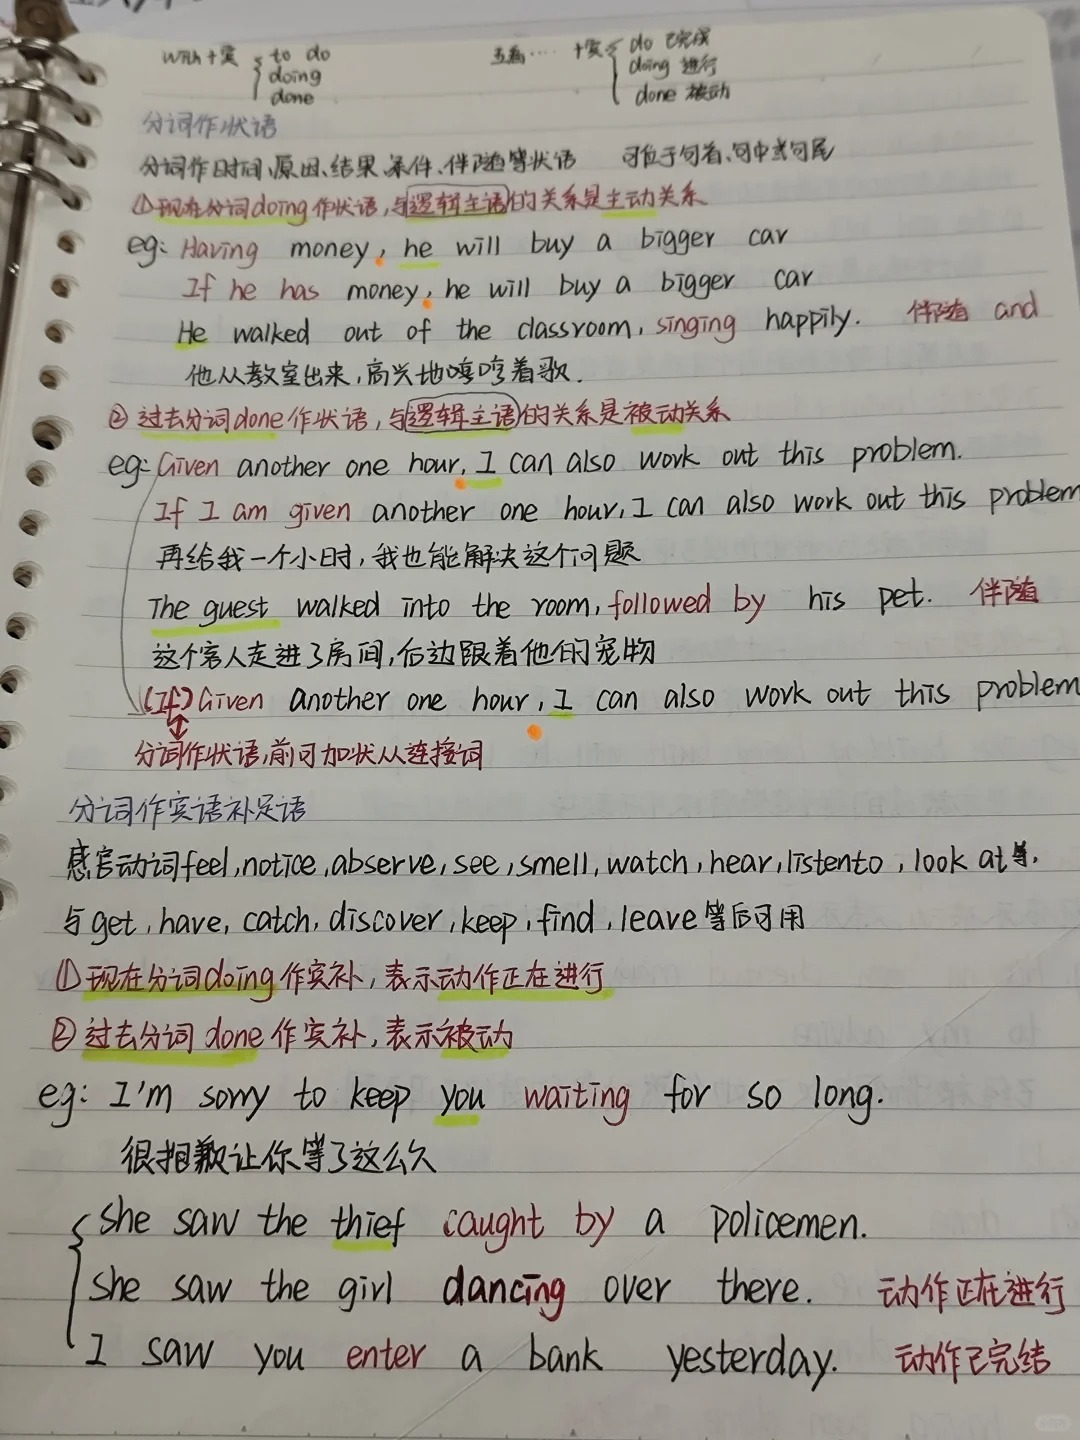 with+宾 { to do
doing
done
五看…. +宾 { do 已完成
doing 进行
done 被动
分词作状语
分词作时间、原因、结果、条件、伴随等状语 可位于句首、句中或句尾
①现在分词doing作状语,与逻辑主语的关系是主动关系
eg: Having money, he will buy a bigger car
If he has money, he will buy a bigger car
He walked out of the classroom, singing happily. 伴随 and
他从教室出来,高兴地哼着歌.
②过去分词done作状语,与逻辑主语的关系是被动关系
eg: Given another one hour, I can also work out this problem.
If I am given another one hour, I can also work out this problem
再给我一个小时,我也能解决这个问题
The guest walked into the room, followed by his pet. 伴随
这个客人走进了房间,后边跟着他的宠物
(If) Given another one hour, I can also work out this problem
分词作状语,前可加状从连接词
分词作宾语补足语
感官动词feel, notice, abserve, see, smell, watch, hear, listento, look at等.
与get, have, catch, discover, keep, find, leave等后可用
①现在分词doing作宾补,表示动作正在进行
②过去分词 done 作宾补,表示被动
eg: I'm sorry to keep you waiting for so long.
很抱歉让你等了这么久
{ she saw the thief caught by a policemen.
she saw the girl dancing over there. 动作正在进行
I saw you enter a bank yesterday. 动作已完结